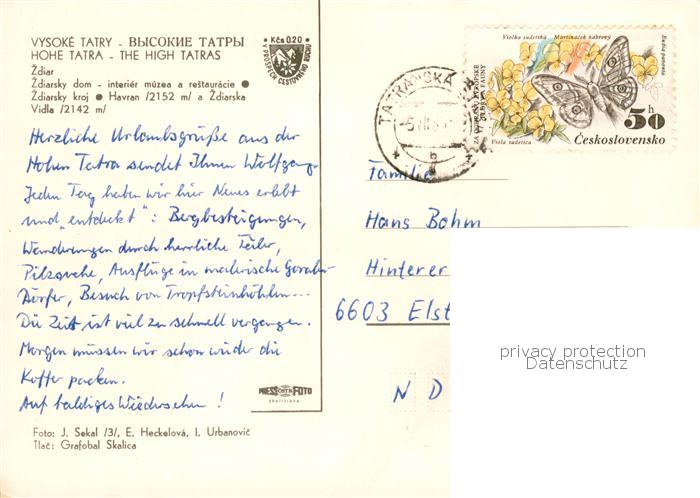 VYSOKÉ TATRY - ВЫСОКИЕ ТАТРЫ
HOHE TATRA - THE HIGH TATRAS
Ždiar
Ždiarsky dom - interiér múzea a reštaurácie ●
Ždiarsky kroj ● Havran /2152 m/ a Ždiarska
Vidla /2142 m/
Kčs 0.20
Herzliche Urlaubsgrüße aus der
Hohen Tatra sendet Ihnen Wolfgang.
Jeden Tag haben wir hier Neues erlebt
und "entdeckt": Bergbesteigungen,
Wanderungen durch herrliche Täler,
Pilzsuche, Ausflüge in malerische Goralen-
Dörfer, Besuch von Tropfsteinhöhlen...
Die Zeit ist viel zu schnell vergangen.
Morgen müssen wir schon wieder die
Koffer packen.
Auf baldiges Wiedersehen!
PRESSFOTO
BRATISLAVA
Foto: J. Sekal /3/, E. Heckelová, I. Urbanovič
Tlač: Grafobal Skalica
Violka sudetská Martináček habrový
Eudia pavonia
Viola sudetica
50 h
Československo
TATRANSKÁ
Familie
Hans Bohm
Hinterer
6603 Elst
N D
privacy protection
Datenschutz